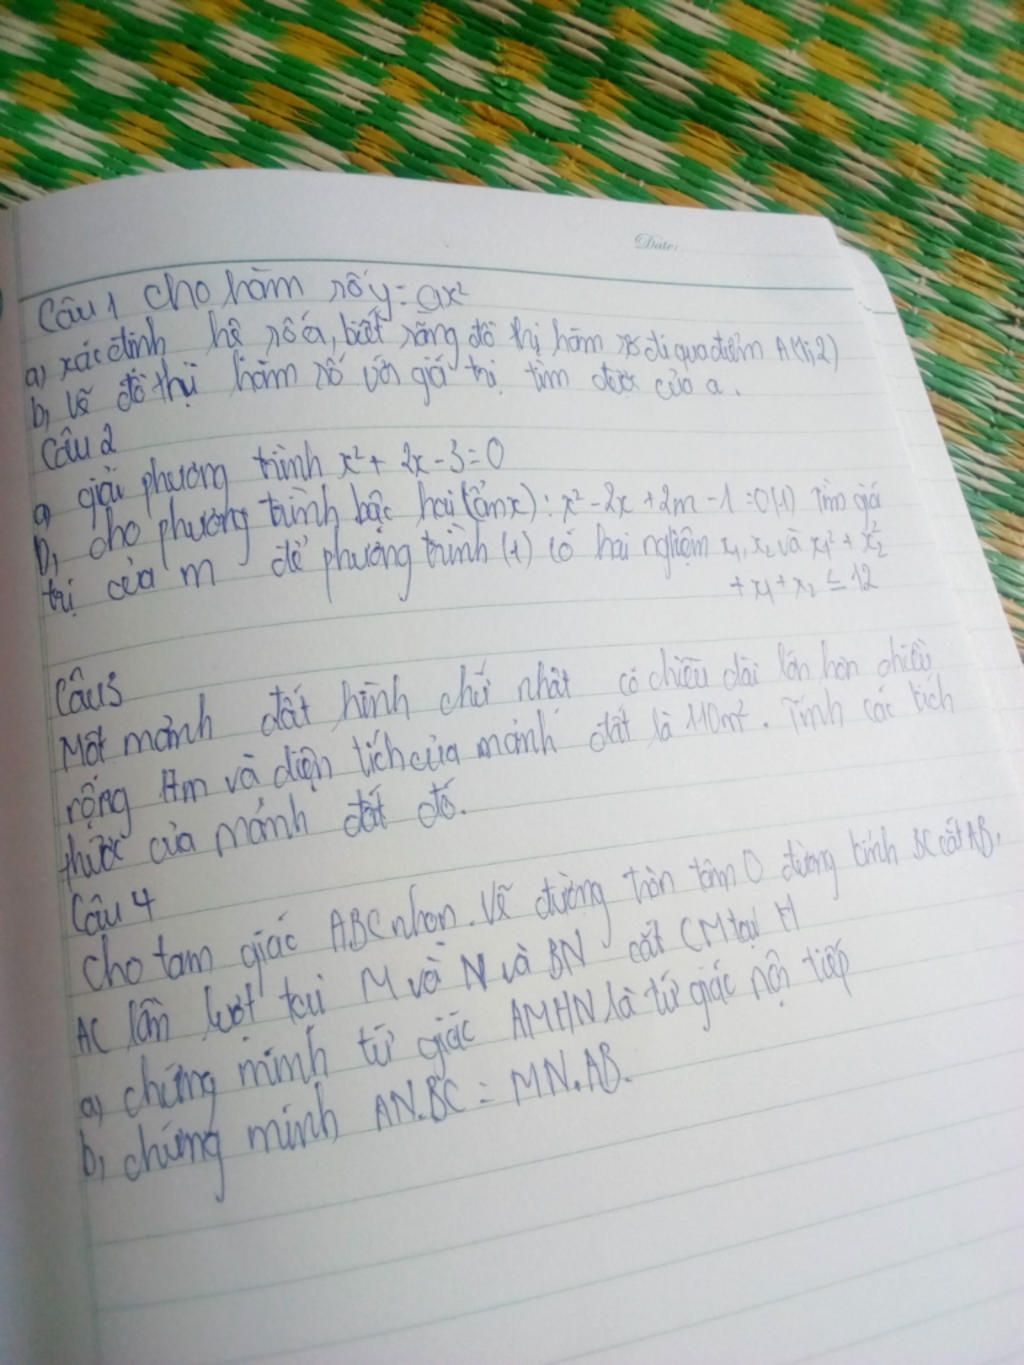 Date:
Câu 1 Cho hàm số y = ax²
a, xác định hệ số a, biết rằng đồ thị hàm số đi qua điểm A(1;2)
b, Vẽ đồ thị hàm số với giá trị tìm được của a.
Câu 2
a, giải phương trình x² + 2x - 3 = 0
b, cho phương trình bậc hai (ẩn x): x² - 2x + 2m - 1 = 0 (1) Tìm giá
trị của m để phương trình (1) có hai nghiệm x₁, x₂ và x₁² + x₂²
+ x₁ + x₂ ≤ 12
Câu 3
Một mảnh đất hình chữ nhật có chiều dài lớn hơn chiều
rộng m và diện tích của mảnh đất là 110m². Tính các kích
thước của mảnh đất đó.
Câu 4
Cho tam giác ABC nhọn. Vẽ đường tròn tâm O đường kính BC cắt AB,
AC lần lượt tại M và N và BN cắt CM tại H
a, chứng minh tứ giác AMHN là tứ giác nội tiếp
b, chứng minh AN.BC = MN.AB.